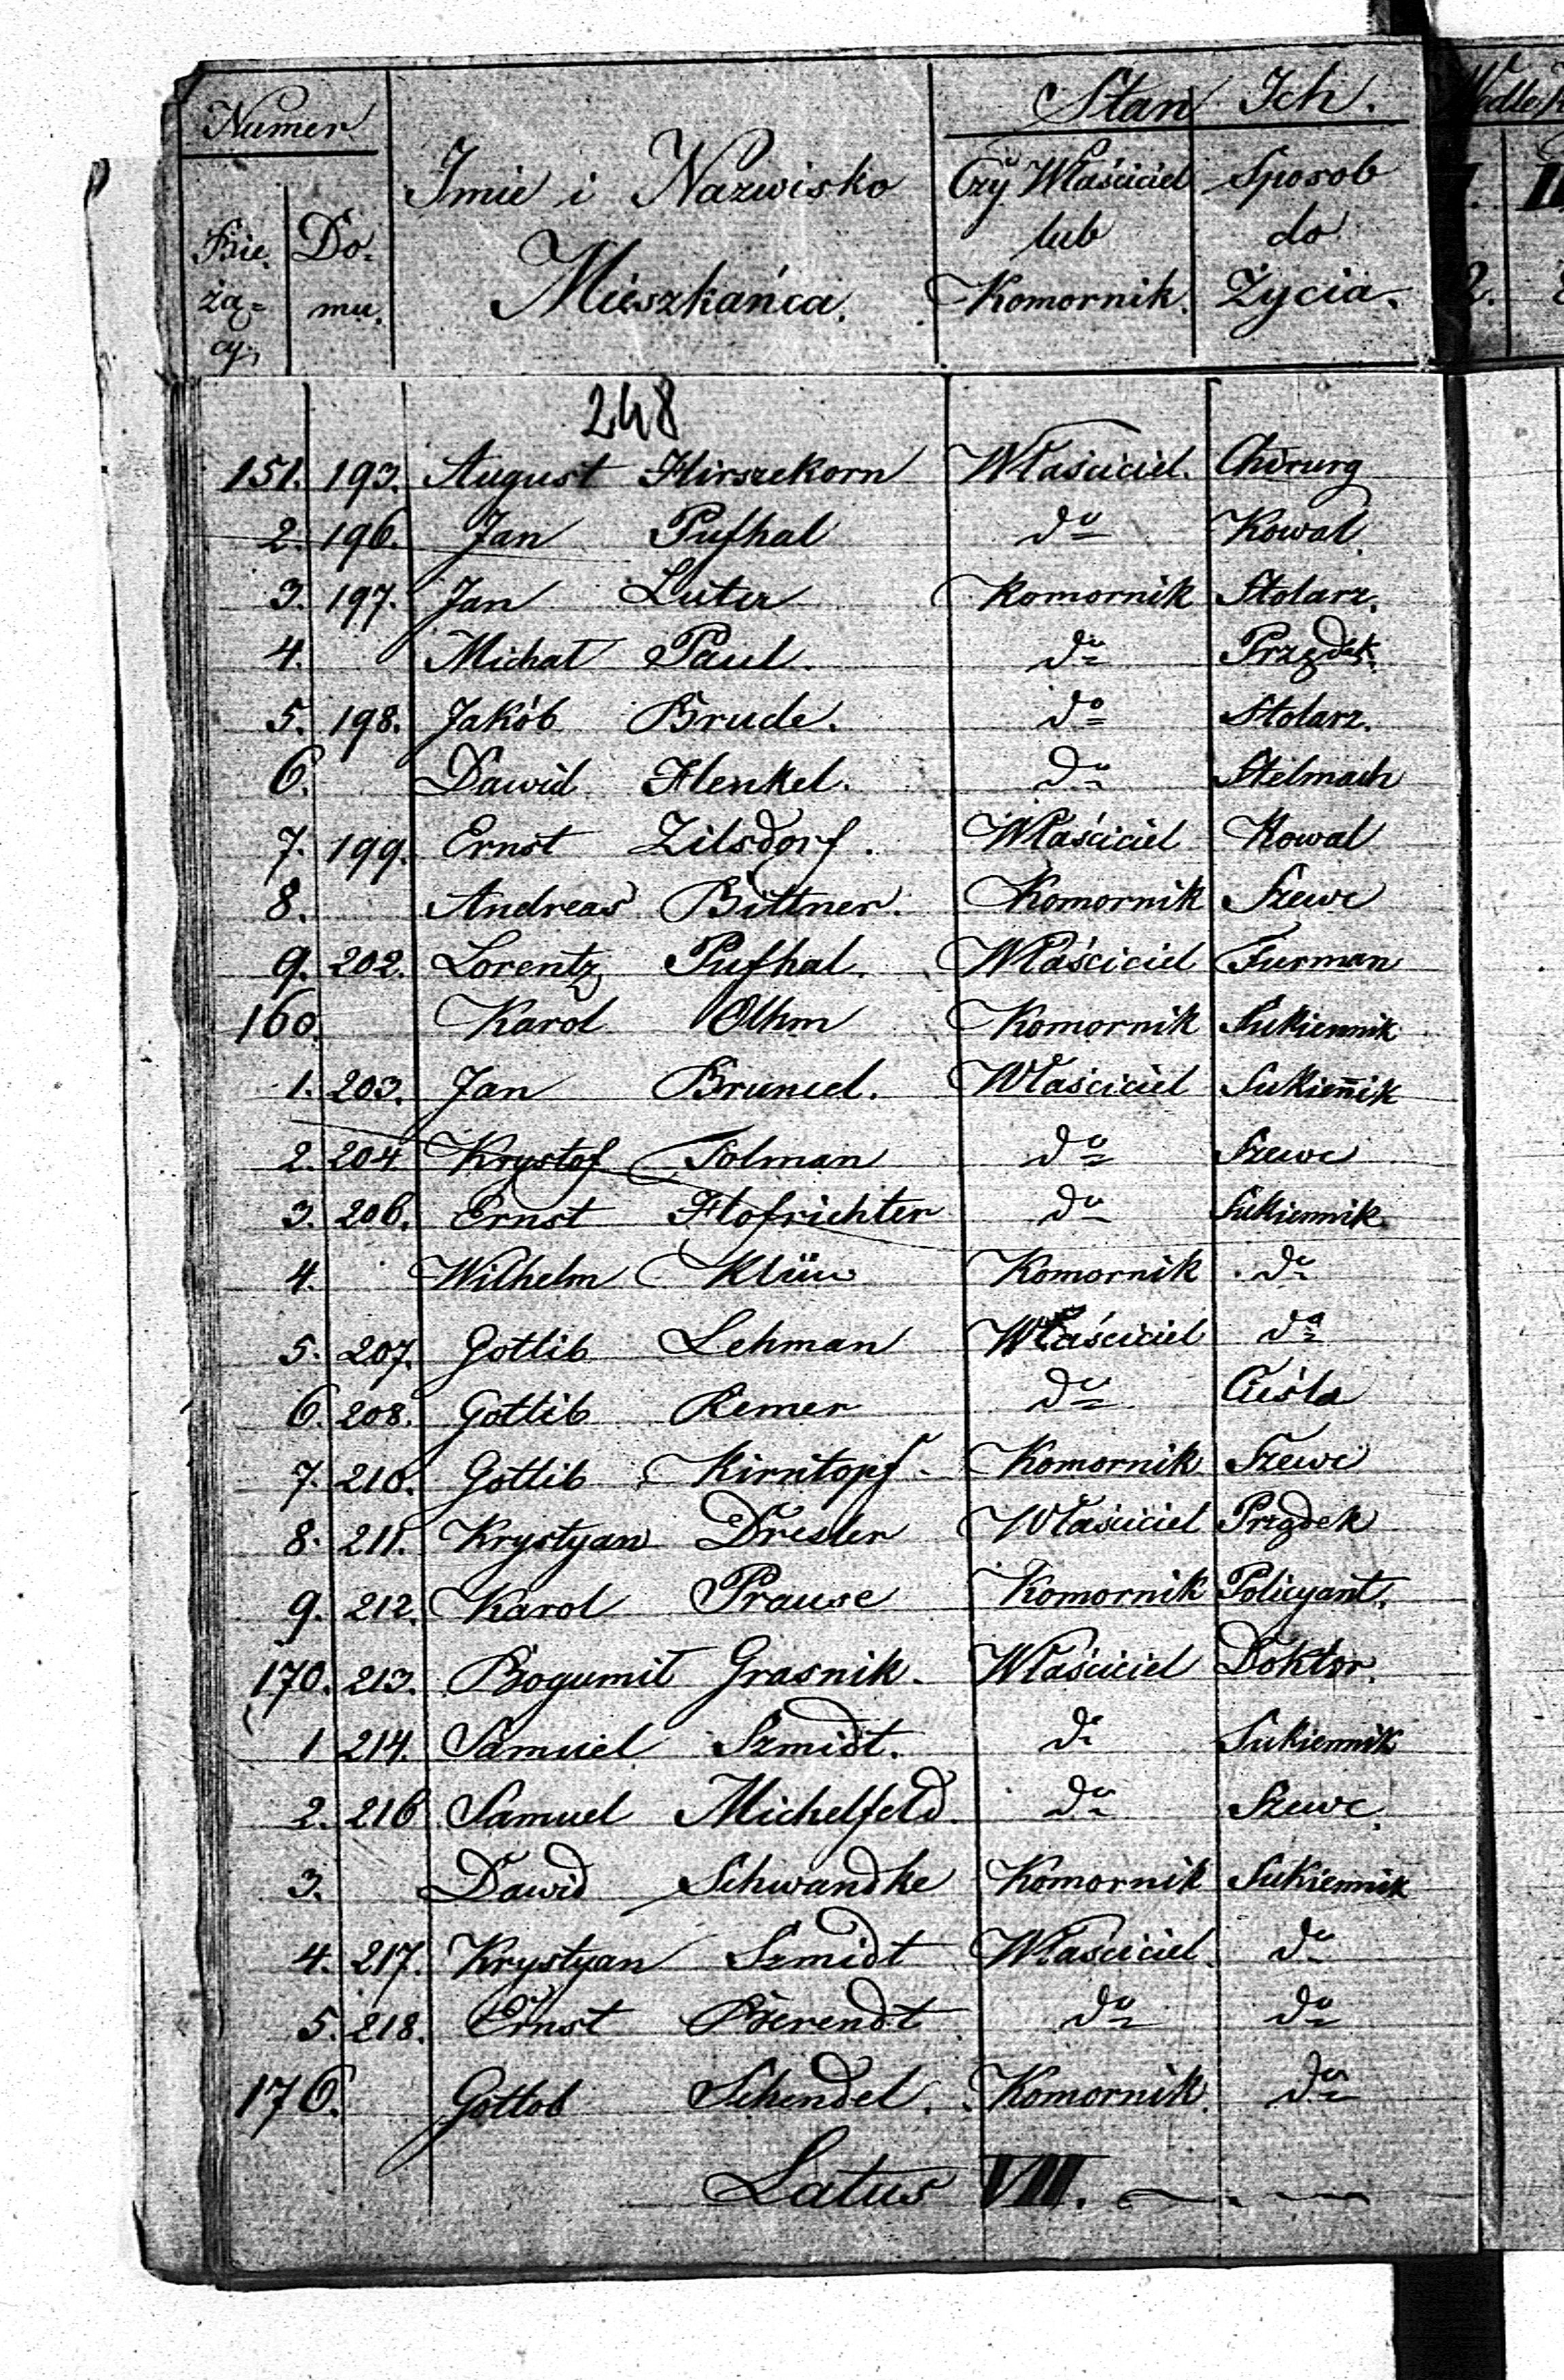 Numer Stan Ich.
Imie i Nazwisko Mieszkańca.
Bieżący Domu. Czy Właściciel lub Komornik. Sposob do Życia.
248
151. 193. August Hirszekorn Właściciel. Chirurg
2. 196. Jan Pufhal do Kowal.
3. 197. Jan Luter Komornik Stolarz.
4. Michał Paul. do Przędek.
5. 198. Jakób Brude. do Stolarz.
6. Dawid Henkel. do Stelmach
7. 199. Ernst Zilsdorf. Właściciel Kowal
8. Andreas Bittner. Komornik Szewc
9. 202. Lorentz Pufhal. Właściciel Furman
160. Karol Ohm Komornik Sukiennik
1. 203. Jan Właściciel Sukien̄ik
2. 204. Krystof Tolman do Szewc
3. 206. Ernst Hofrichter do Sukiennik
4. Wilhelm Komornik do
5. 207. Gotlib Lehman Właściciel do
6. 208. Gotlib Remer do Cieśla
7. 210. Gotlib Kirntopf. Komornik Szewc
8. 211. Krystyan Dresler Właściciel Przędek
9. 212. Karol Prause Komornik Policyant.
170. 213. Bogumił Grasnik. Właściciel Doktor.
1 214. Samuel Szmidt. do Sukiennik
2. 216 Samuel Michelfeld. do Szewc.
3. Dawid Schwandke Komornik Sukiennik
4. 217. Krystyan Szmidt Właściciel. do
5. 218. Ernst Berendt do do
176. Gotlob Schendel. Komornik. do
Latus VII.